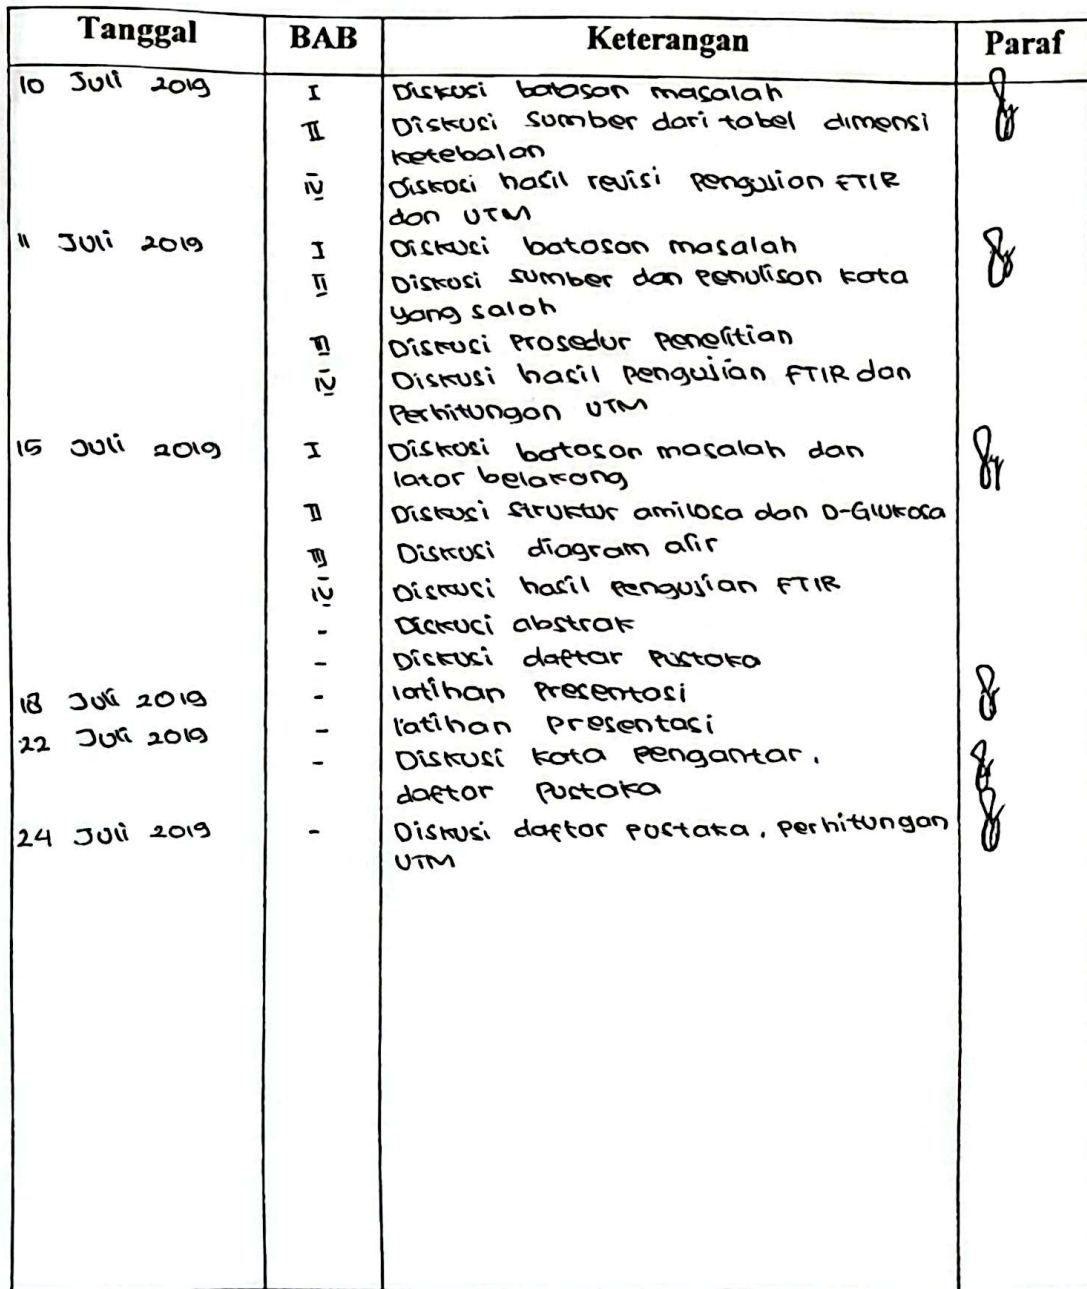 Tanggal BAB Keterangan Paraf
10 Juli 2019 I Diskusi batasan masalah
II Diskusi sumber dari tabel dimensi
ketebalan
IV Diskusi hasil revisi pengujian FTIR
dan UTM
11 Juli 2019 I Diskusi batasan masalah
II Diskusi sumber dan penulisan kata
yang salah
III Diskusi prosedur penelitian
IV Diskusi hasil pengujian FTIR dan
Perhitungan UTM
15 Juli 2019 I Diskusi batasan masalah dan
latar belakang
II Diskusi struktur amilosa dan D-Glukosa
III Diskusi diagram alir
IV Diskusi hasil pengujian FTIR
- Diskusi abstrak
- Diskusi daftar pustaka
18 Juli 2019 - latihan presentasi
22 Juli 2019 - latihan presentasi
- Diskusi kata pengantar,
daftar pustaka
24 Juli 2019 - Diskusi daftar pustaka, perhitungan
UTM